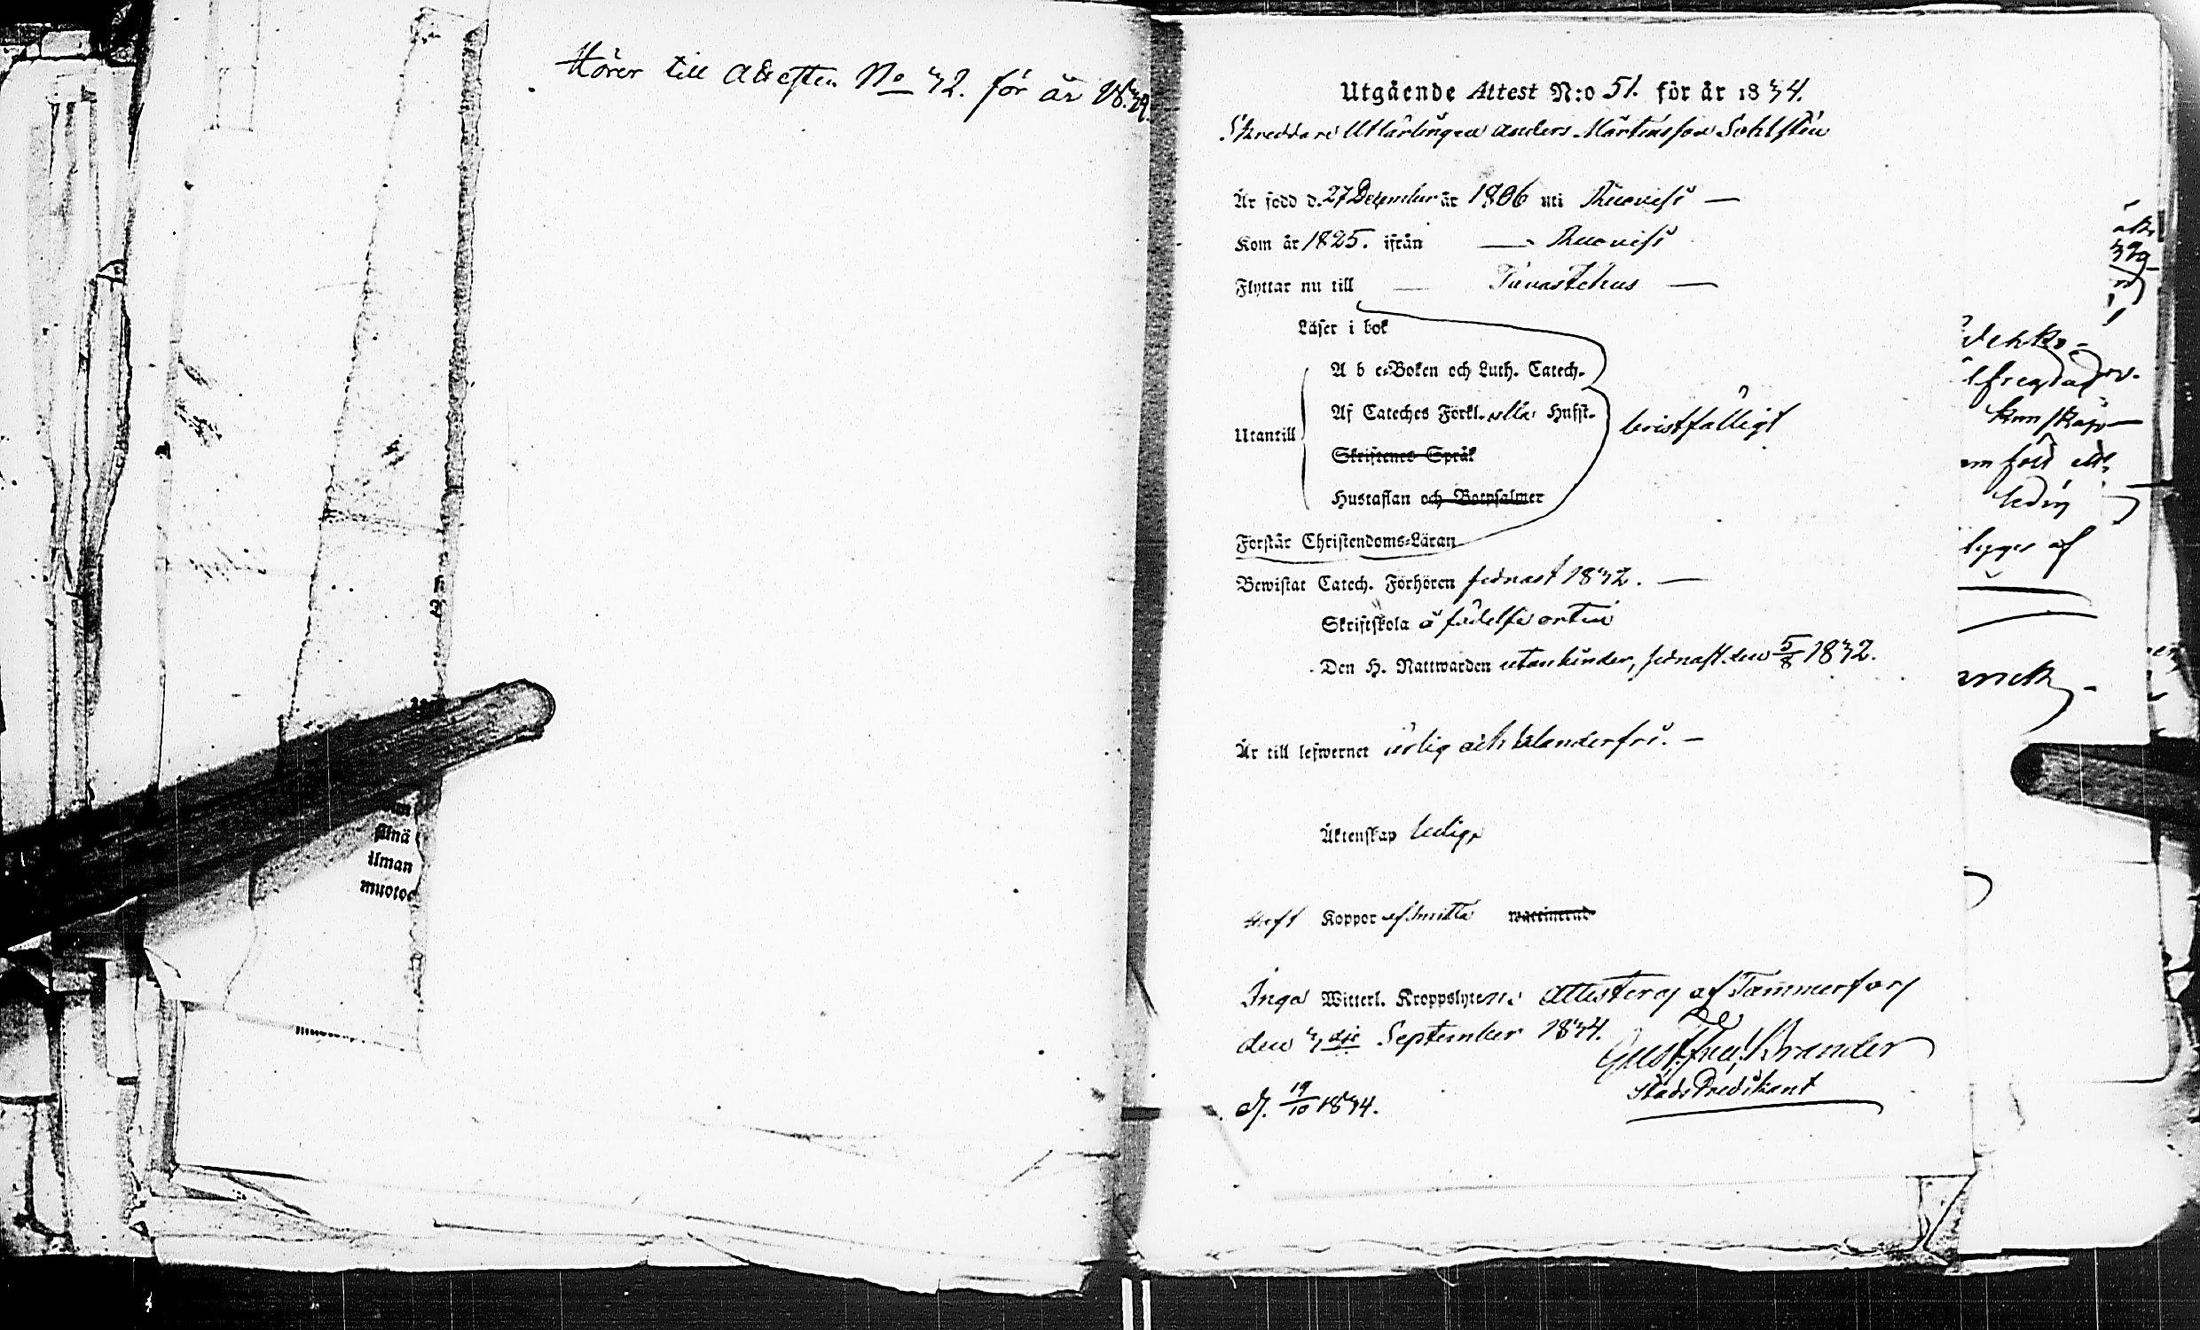 Hörer till Attesten No 32. för år 1834.
Utgående Attest N:o 51. för år 1834.
Skreddare Utlärlingen Anders Mårtensson Sohlstén
Är född d. 27 December år 1806 uti Ruovesi —
Kom år 1825. ifrån — Ruovesi
Flyttar nu till — Tavastehus —
Läser i bok
A b c-Boken och Luth. Catech.
Af Cateches Förkl. Husst.
Utantill
bristfälligt
Skriftenes Språk
Hustaflan och Botpsalmer
Förstår Christendoms-Läran
Bewistat Catech. Förhören sednast 1832. —
Skriftskola å födelse orten
Den H. Nattwarden utan hinder, sednast den 5/8 1832.
Är till lefwernet ärlig och klanderfri. —
Äktenskap ledig,
Haft Koppor vaccinerad
Inga Witterl. Kroppslyten, Attesteras af Tammerfors
den 3dje September 1834.
Gust. Brander
StadsPredikant
19/10 1834.
sinä
ilman
muotoo
kunskap
ledig
af